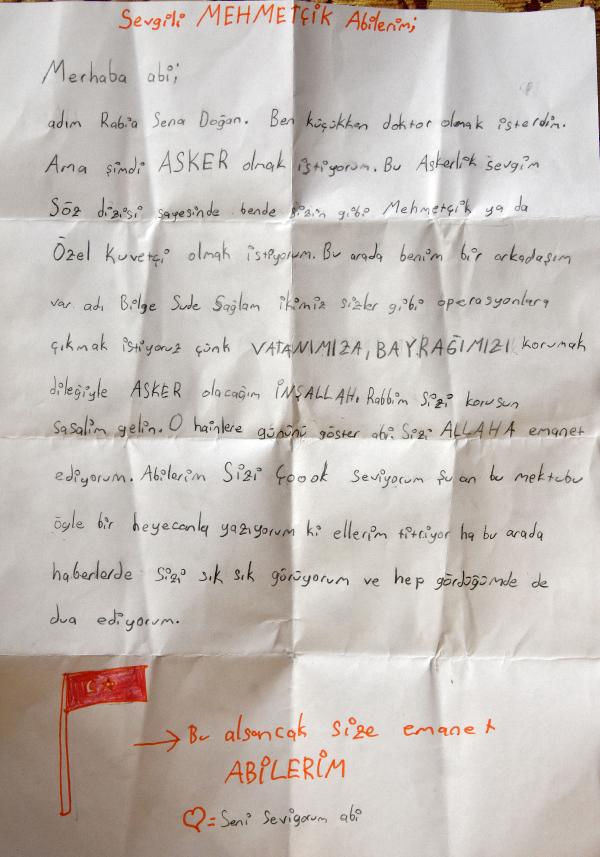 Sevgili MEHMETÇİK Abilerim;
Merhaba abi;
adım Rabia Sena Doğan. Ben küçükken doktor olmak isterdim.
Ama şimdi ASKER olmak istiyorum. Bu Askerlik sevgim
Söz dizisi sayesinde bende sizin gibi Mehmetçik ya da
Özel Kuvetçi olmak istiyorum. Bu arada benim bir arkadaşım
var adı Bilge Sude Sağlam ikimiz sizler gibi operasyonlara
çıkmak istiyoruz çünk VATANIMIZA, BAYRAĞIMIZI korumak
dileğiyle ASKER olacağım İNŞALLAH. Rabbim sizi korusun
sasalim gelin. O hainlere gününü göster abi Sizi ALLAHA emanet
ediyorum. Abilerim Sizi Çoook seviyorum şu an bu mektubu
öyle bir heyecanla yazıyorum ki ellerim titriyor ha bu arada
haberlerde sizi sık sık görüyorum ve hep gördüğümde de
dua ediyorum.
→ Bu alsancak size emanet
ABİLERİM
♡= Seni Seviyorum abi